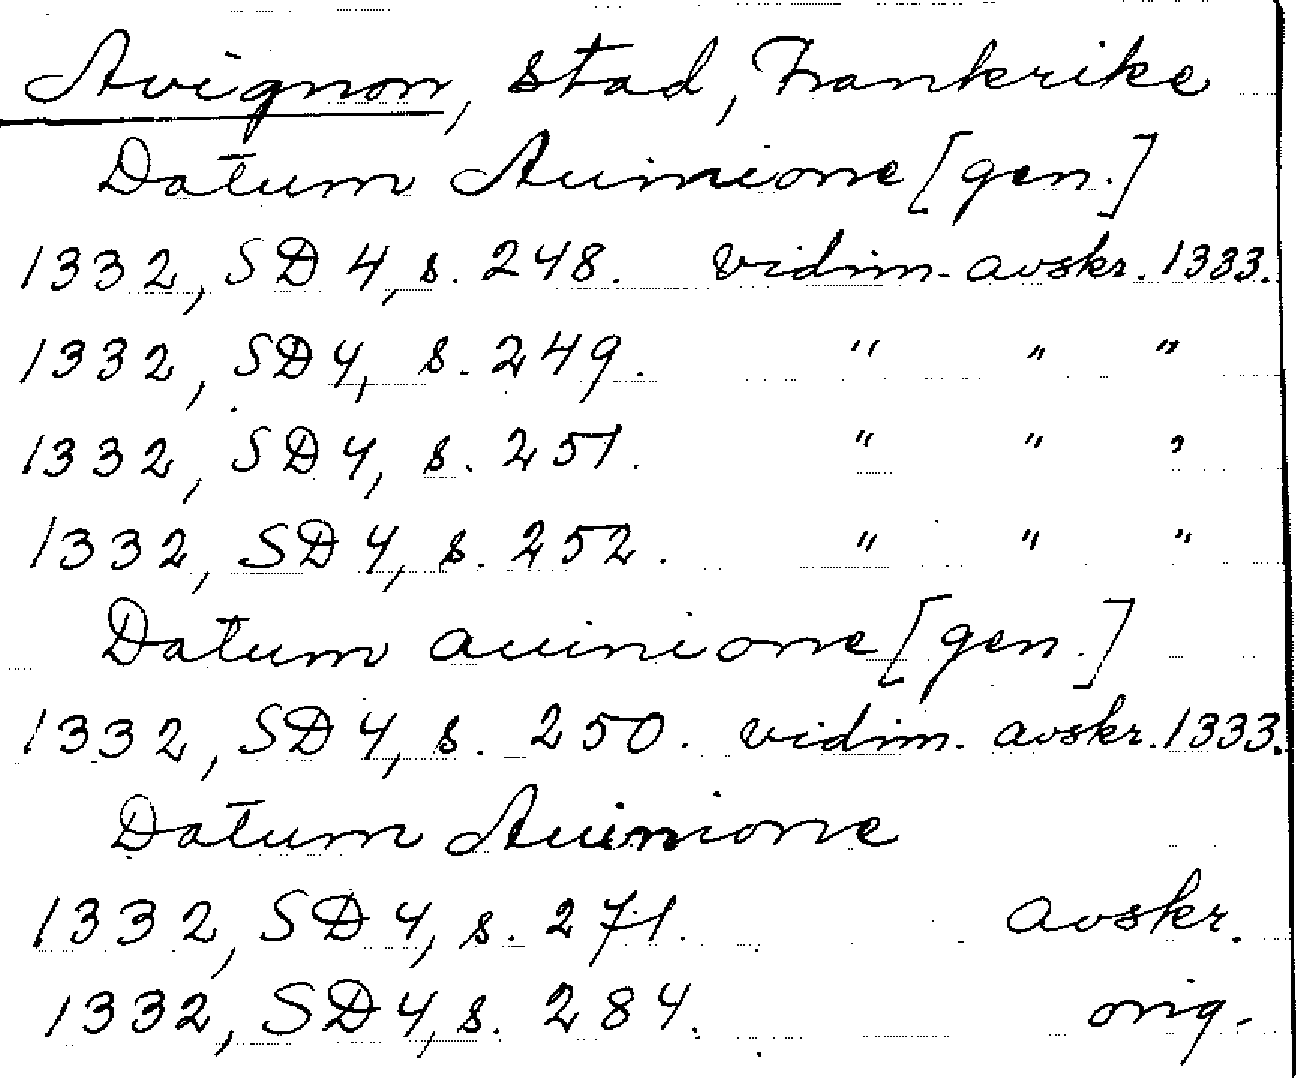 Avignon, stad, Frankrike
Datum Auinione [gen.]
1332, SD 4, s. 248. vidim. avskr. 1333.
1332, SD 4, s. 249. " " "
1332, SD 4, s. 251. " " "
1332, SD 4, s. 252. " " "
Datum auinione [gen.]
1332, SD 4, s. 250. vidim. avskr. 1333.
Datum Auinione
1332, SD 4, s. 271. avskr.
1332, SD 4, s. 284. orig.